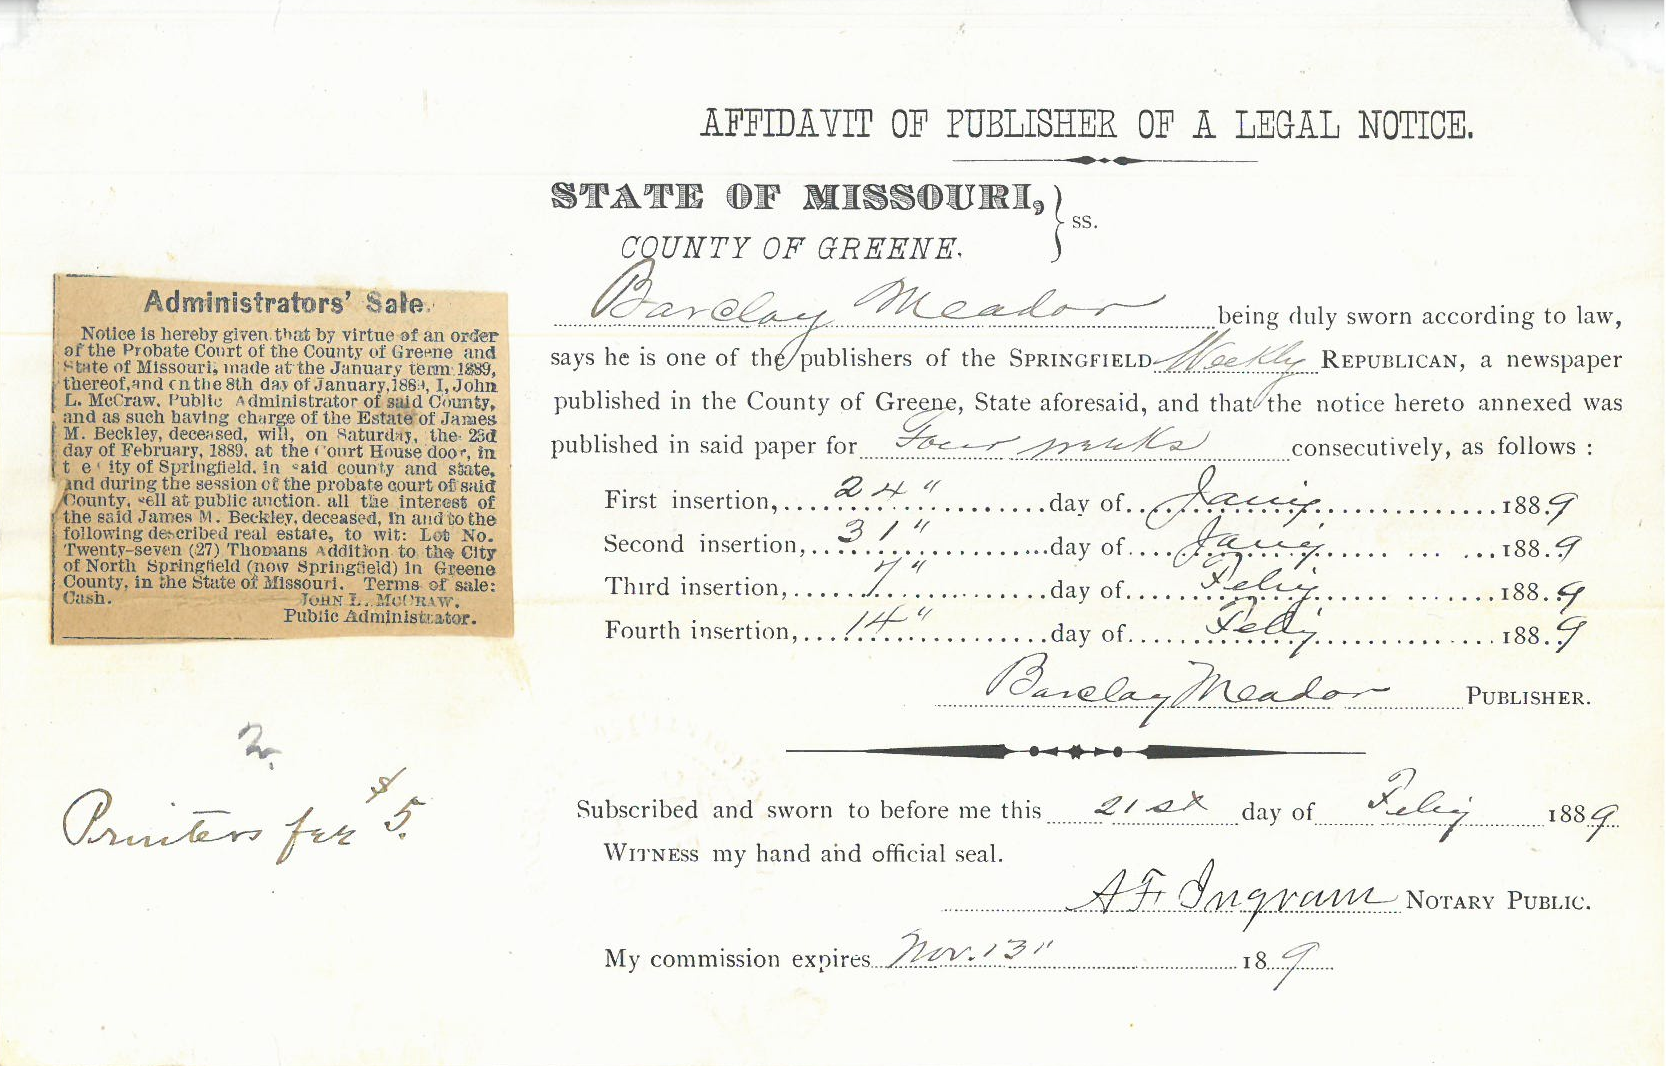 AFFIDAVIT OF PUBLISHER OF A LEGAL NOTICE.
STATE OF MISSOURI, } ss.
COUNTY OF GREENE.
Barclay Meador being duly sworn according to law,
says he is one of the publishers of the SPRINGFIELD Weekly REPUBLICAN, a newspaper
published in the County of Greene, State aforesaid, and that the notice hereto annexed was
published in said paper for Four weeks consecutively, as follows :
First insertion, 24" day of Jany 1889
Second insertion, 31" day of Jany 1889
Third insertion, 7" day of Feby 1889
Fourth insertion, 14" day of Feby 1889
Barclay Meador PUBLISHER.
Subscribed and sworn to before me this 21st day of Feby 1889
WITNESS my hand and official seal.
A F Ingram NOTARY PUBLIC.
My commission expires Nov. 13" 189
Administrators' Sale.
Notice is hereby given that by virtue of an order
of the Probate Court of the County of Greene and
State of Missouri, made at the January term 1889,
thereof, and on the 8th day of January, 1889, I, John
L. McCraw, Public Administrator of said County,
and as such having charge of the Estate of James
M. Beckley, deceased, will, on Saturday, the 23d
day of February, 1889, at the Court House door, in
t e ity of Springfield, in said county and state,
and during the session of the probate court of said
County, sell at public auction. all the interest of
the said James M. Beckley, deceased, in and to the
following described real estate, to wit: Lot No.
Twenty-seven (27) Thomans Addition to the City
of North Springfield (now Springfield) in Greene
County, in the State of Missouri. Terms of sale:
Cash. JOHN L. McCRAW.
Public Administrator.
Printers fee $5.